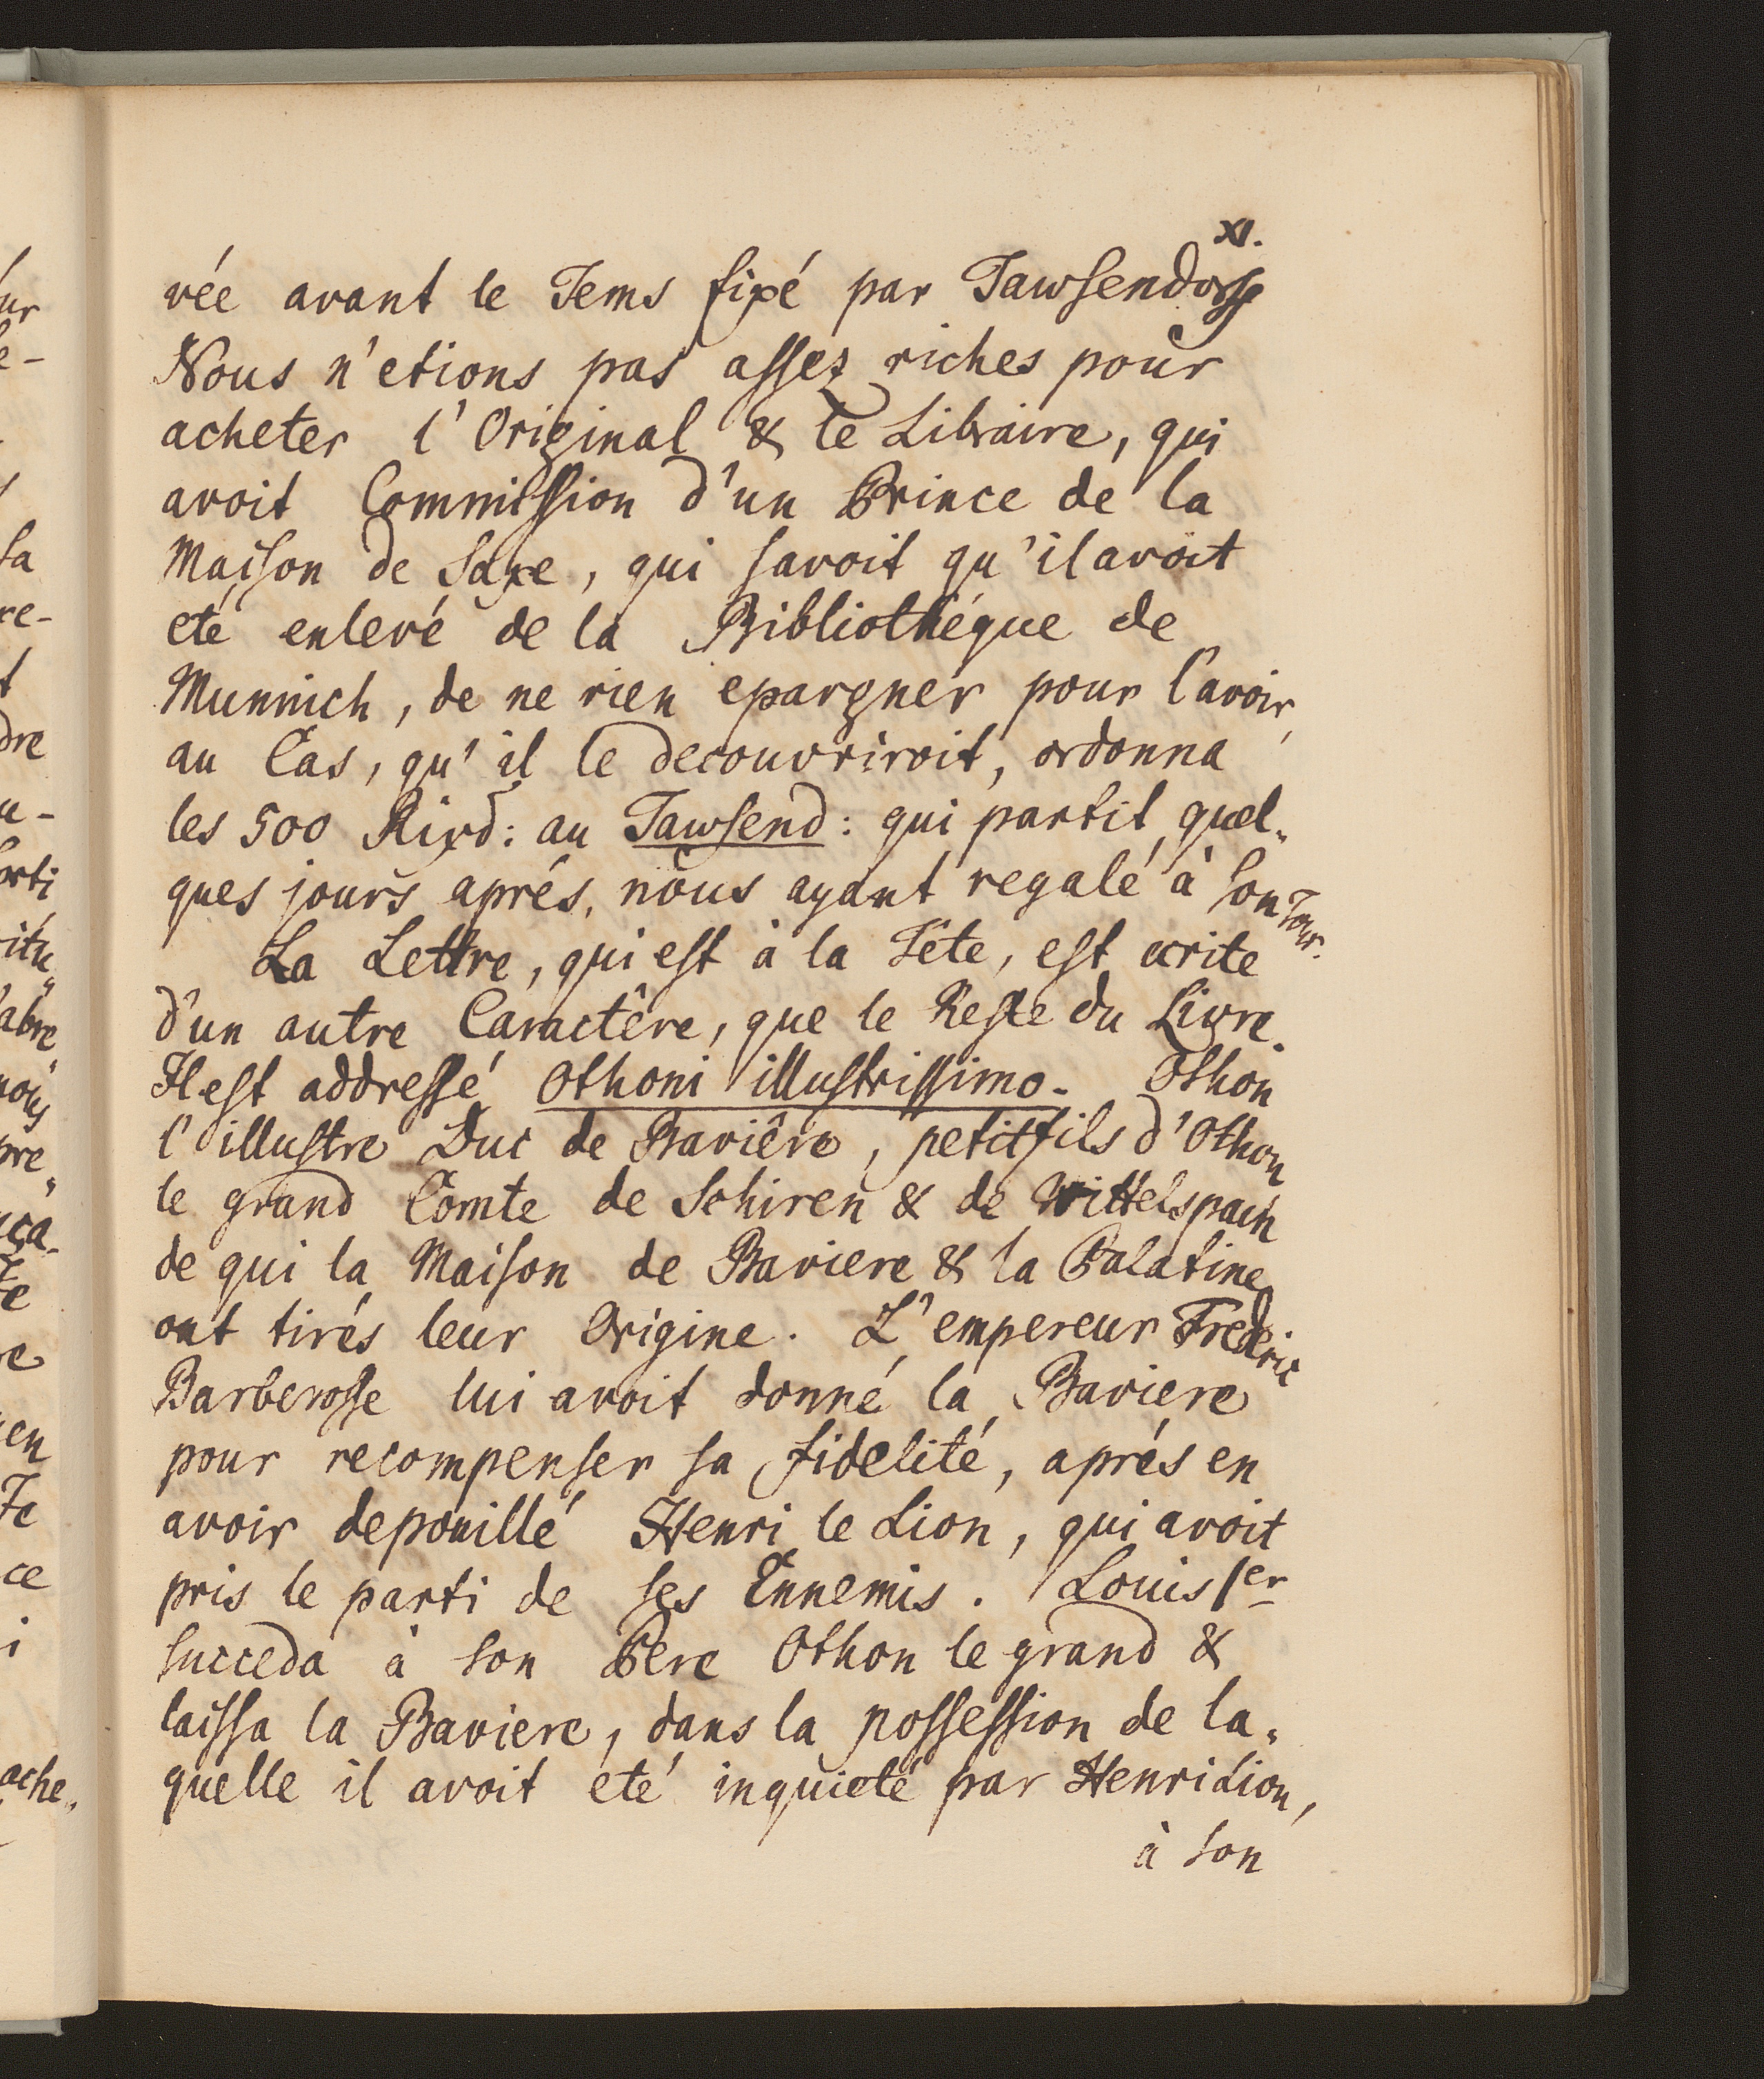 XI.
vée avant le Tems fixé par Tawsendorff
Nous n'etions pas assez riches pour
acheter l'Original & le Libraire, qui
avoit Commission d'un Prince de la
Maison de Saxe, qui savoit qu'il avoit
eté enlevé de la Bibliothéque de
Munnich, de ne rien epargner pour l'avoir,
au Cas, qu'il le decouvriroit, ordonna
les 500 Rixd: au Tawsend: qui partit quel„
ques jours aprés, nous ayant regalé à son Tour.
La Lettre, qui est à la Tête, est ecrite
d'un autre Caractêre, que le Reste du Livre.
Il est addressé Othoni illustrissimo. Othon
l'illustre Duc de Baviêre, petitfils d'Othon
le grand Comte de Schiren & de Wittelspach
de qui la Maison de Baviere & la Palatine
ont tirés leur Origine. L'empereur Frederic
Barberosse lui avoit donné la Baviere
pour recompenser sa fidelité, aprés en
avoir depouillé Henri le Lion, qui avoit
pris le parti de ses Ennemis. Louis 1er
succeda à son Pere Othon le grand &
laissa la Baviere, dans la possession de la„
quelle il avoit eté inquieté par Henri Lion,
à son
ur
e-
sa
re-
t
dre
u-
orti
itu„
abre
nous
pre„
ça-
Te
re
en
Je
ce
i
ache„